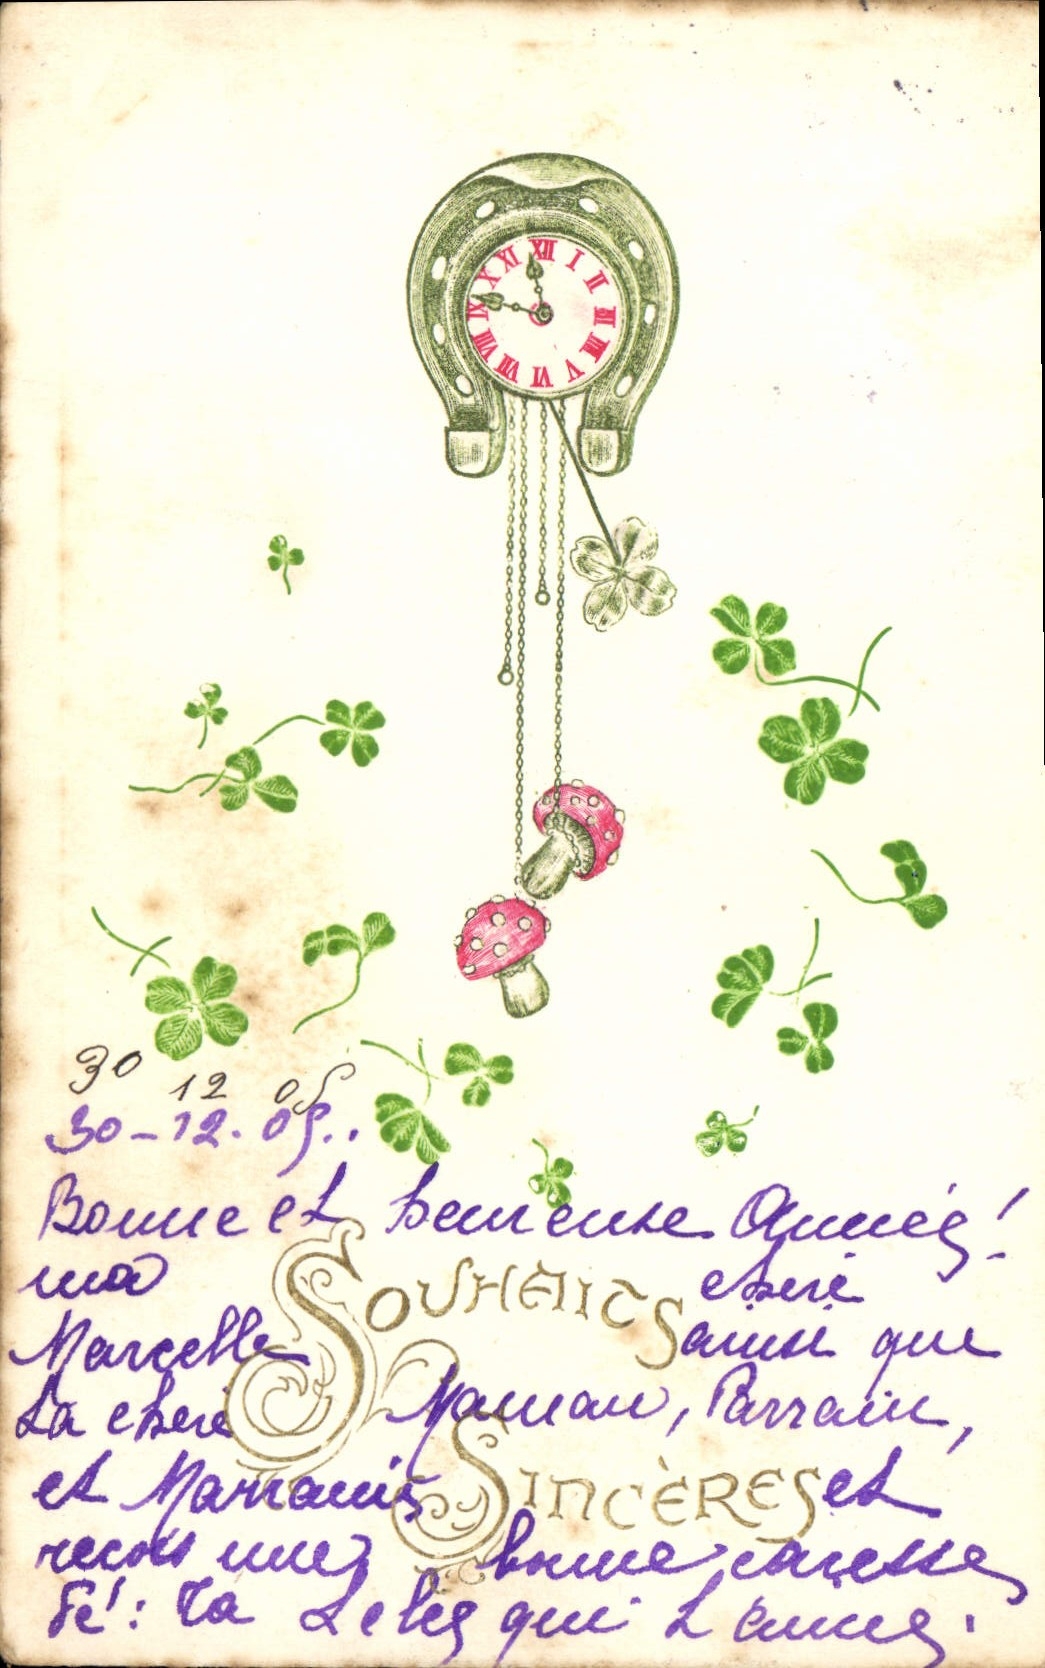 XII I II III IIII V VI VII VIII IX X XI
30 12 05
30-12.05..
Bonne et heureuse Année!
ma cheré
Souhaits
Marcelle ainsi que
La cheré Maman, Parrain,
et Marraine et
Sincères
reçois une bonne caresse
Ta qui L'aime.